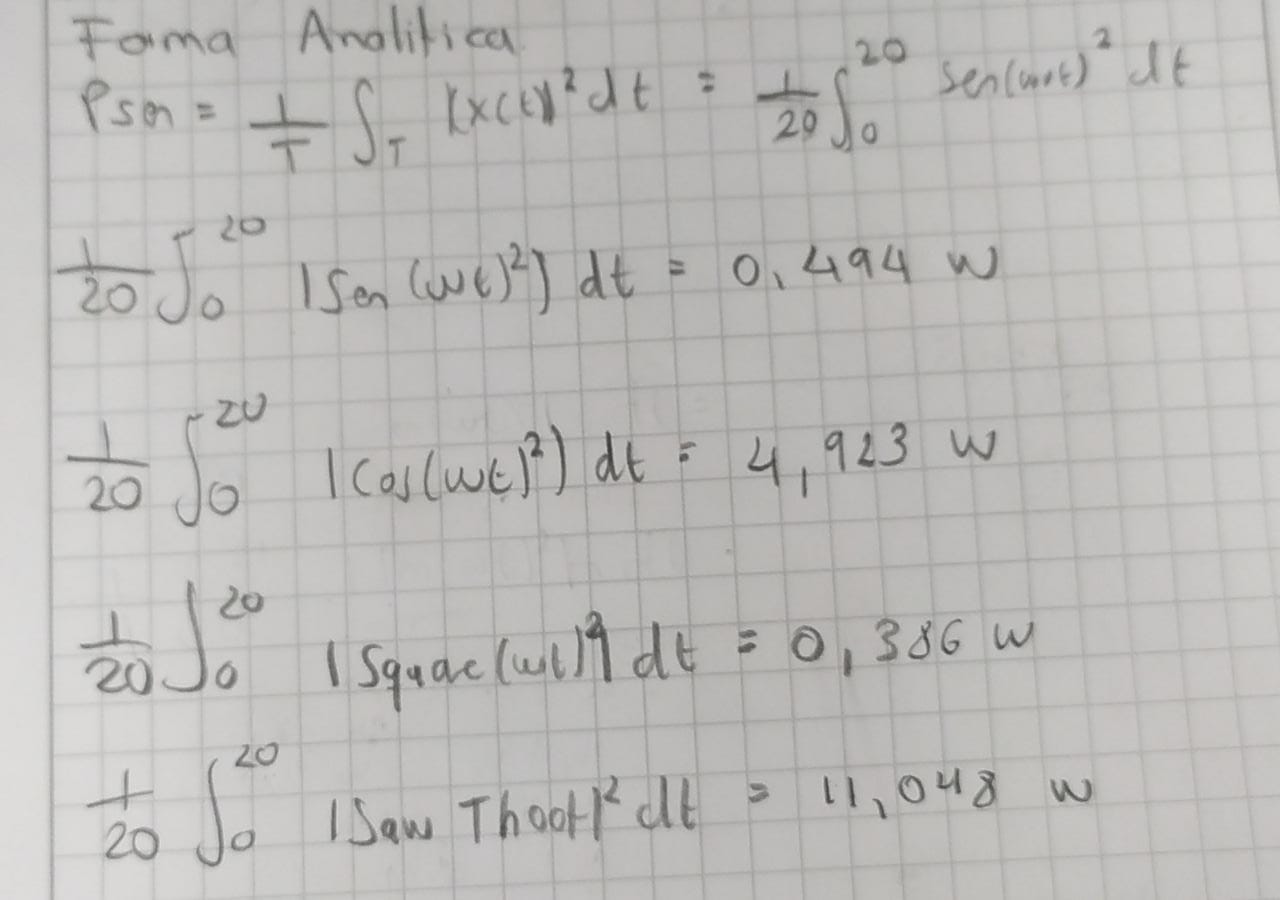 Foma Analitica
Psen = 1/T ∫T |(x(t)|² dt = 1/20 ∫₀²⁰ sen(wot)² dt
1/20 ∫₀²⁰ |Sen (wt)²| dt = 0,494 w
1/20 ∫₀²⁰ |Cos(wt)²) dt = 4,923 w
1/20 ∫₀²⁰ |Squae (wt)²| dt = 0,386 w
1/20 ∫₀²⁰ |Saw Thoot|² dt = 11,048 w